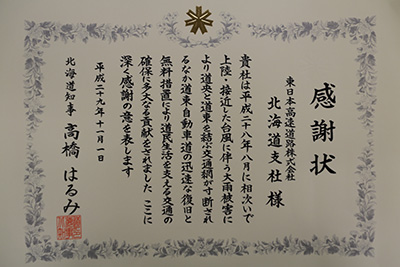 感謝状
東日本高速道路株式会社
北海道支社 様
貴社は平成二十八年八月に相次いで
上陸・接近した台風に伴う大雨被害に
より道央と道東を結ぶ交通網が寸断され
るなか道東自動車道の迅速な復旧と
無料措置により道民生活を支える交通の
確保に多大なる貢献をされました ここに
深く感謝の意を表します
平成二十九年十一月一日
北海道知事 高橋はるみ